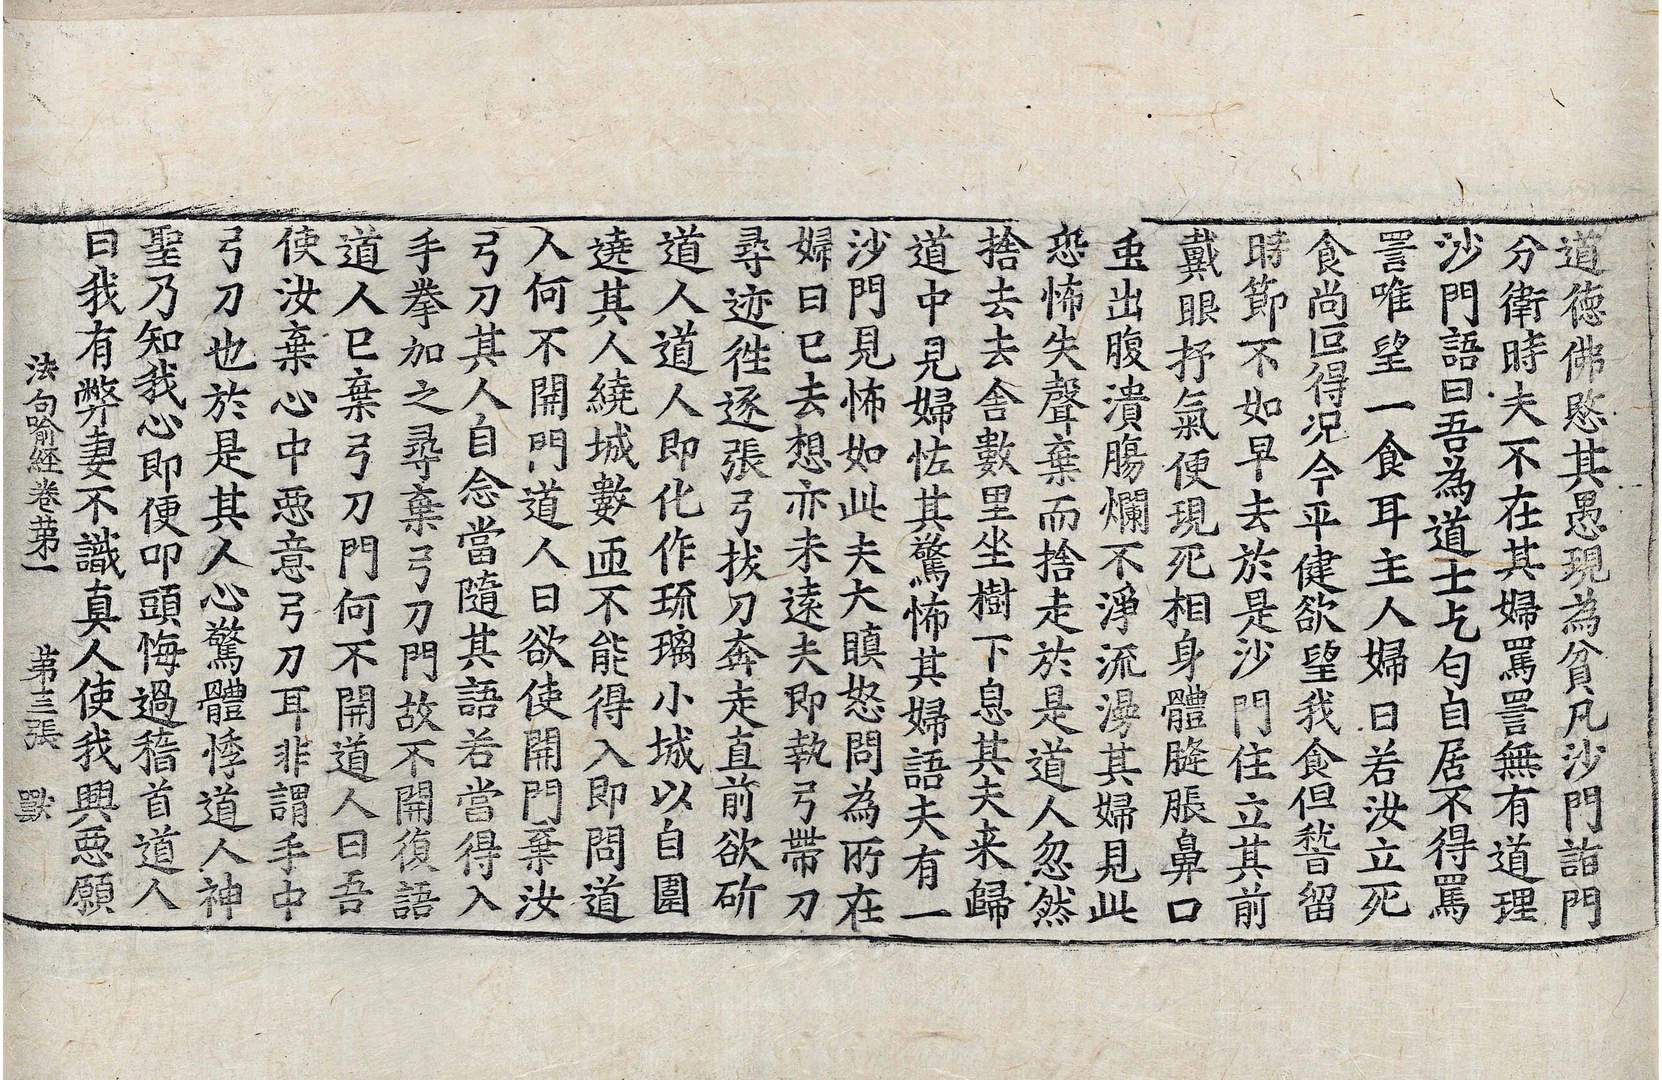 道德佛愍其愚現為貧凡沙門詣門
分衛時夫不在其婦罵詈無有道理
沙門語曰吾為道士乞匂自居不得罵
詈唯望一食耳主人婦曰若汝立死
食尚叵得況今平健欲望我食但嵇留
時節不如早去於是沙門住立其前
戴眼抒氣便現死相身體膖脹鼻口
虫出腹潰腸爛不淨流漫其婦見此
恐怖失聲棄而捨走於是道人忽然
捨去去舍數里坐樹下息其夫来歸
道中見婦怪其驚怖其婦語夫有一
沙門見怖如此夫大瞋怒問為所在
婦曰已去想亦未遠夫即執弓帶刀
尋迹徃逐張弓拔刀奔走直前欲斫
道人道人即化作琉璃小城以自圍
遶其人繞城數匝不能得入即問道
人何不開門道人曰欲使開門棄汝
弓刀其人自念當隨其語若當得入
手拳加之尋棄弓刀門故不開復語
道人已棄弓刀門何不開道人曰吾
使汝棄心中惡意弓刀耳非謂手中
弓刀也於是其人心驚體悸道人神
聖乃知我心即便叩頭悔過稽首道人
曰我有弊妻不識真人使我興惡願
法句喻経卷苐一 苐三張 獸